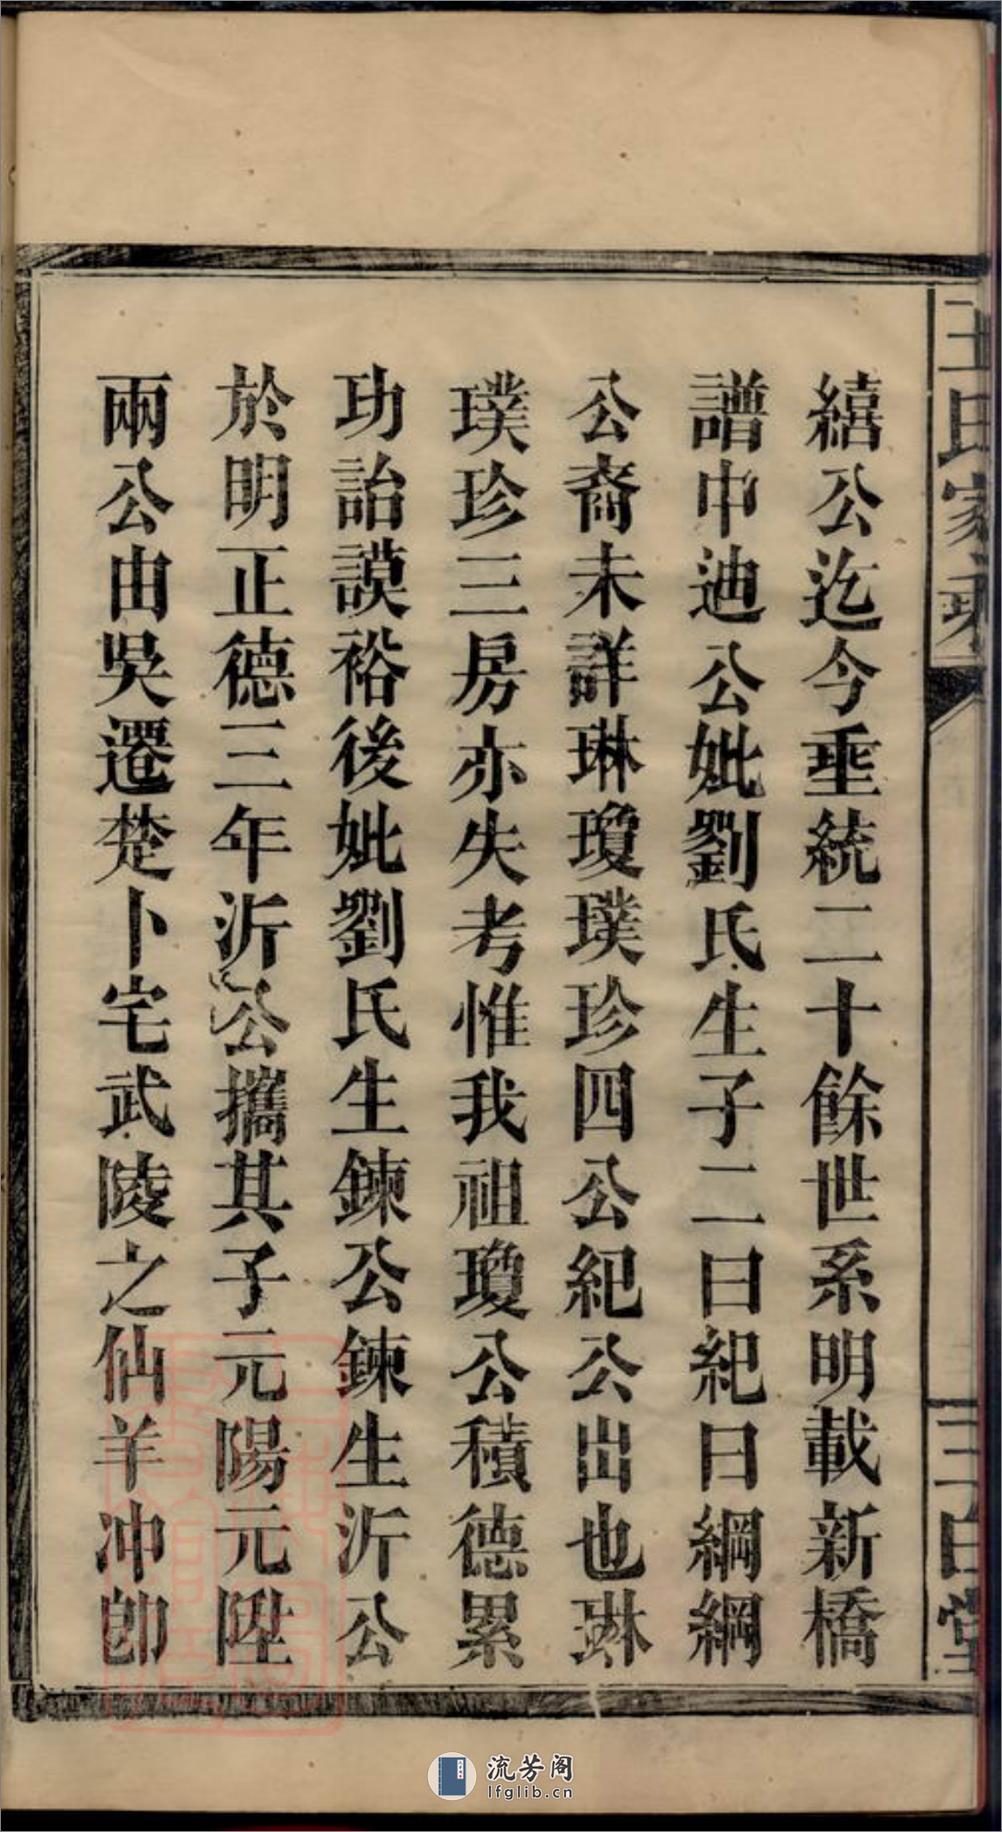 繥公迄今垂統二十餘世系明載新橋
譜中迪公妣劉氏生子二曰紀曰綱綱
公裔未詳琳瓊璞珍四公紀公出也琳
璞珍三房亦失考惟我祖瓊公積德累
功詒謨裕後妣劉氏生鍊公鍊生沂公
於明正德三年沂公攜其子元陽元陞
兩公由吳遷楚卜宅武陵之仙羊冲卽
王氏家乘
三白堂
流芳阁
lfglib.cn